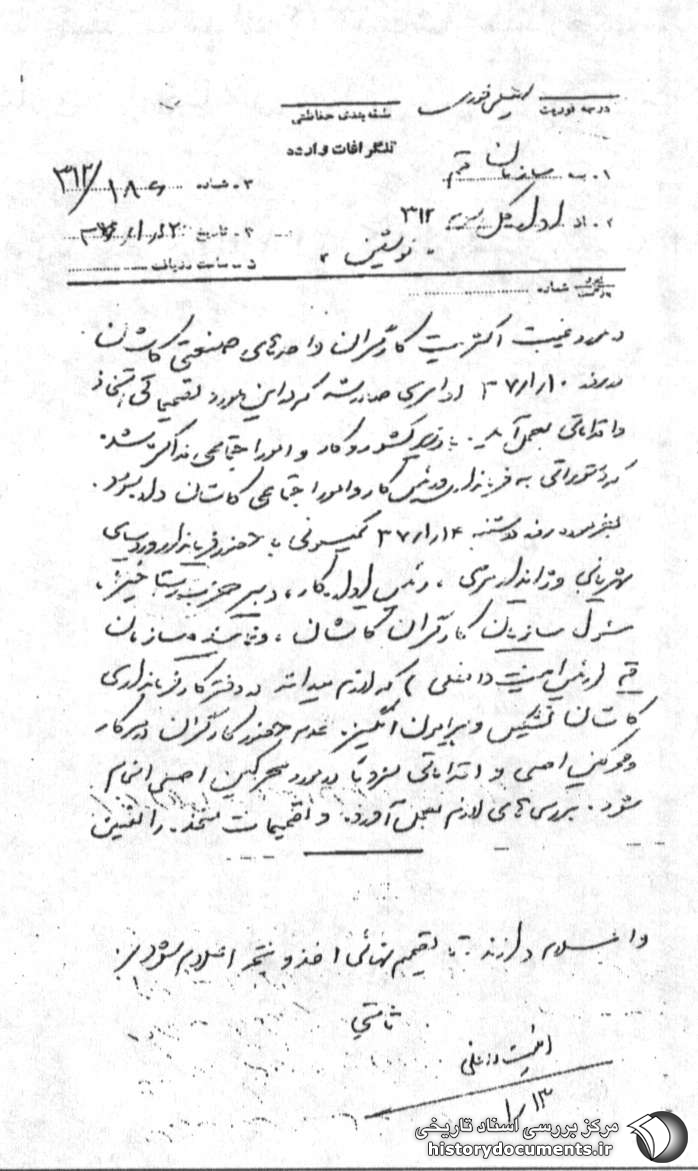 درجه فوریت خیلی فوری طبقه‌بندی حفاظتی
تلگرافات وارده
۱- به سازمان قم ۳- شماره ۳۱۲/۱۸۰۶
۲- از اداره کل سوم ۳۱۲ ۴- تاریخ
۵- ساعت دریافت
شماره
در مورد غیبت اکثریت کارگران واحدهای صنعتی کاشان
در روز ۳۷/۱/۱۰ اوامری صادر شد که در این مورد تصمیماتی اتخاذ
و اقداماتی بعمل آید. با وزیر کشور و کار و امور اجتماعی مذاکره شد.
که دستوراتی به فرمانداری و رئیس کار و امور اجتماعی کاشان داده بودند.
مقرر روز دوشنبه ۳۷/۱/۱۴ کمیسیونی با حضور فرماندار و روسای
شهربانی و ژاندارمری، رئیس اداره کار، دبیر حزب رستاخیز،
مسئول سازمان کارگران کاشان، و نماینده سازمان
قم (رئیس امنیت داخلی) که لازم میدانند در دفتر کار فرمانداری
کاشان تشکیل و پیرامون انگیزه عدم حضور کارگران در سر کار
و محرکین اصلی و اقداماتی که در مورد محرکین اصلی انجام
شود. بررسی‌های لازم بعمل آورده و تصمیمات متخذه را تعیین
و اعلام دارند تا تصمیم نهائی اخذ و نتیجه اعلام شود.
ثابتی
امنیت داخلی
۱/۱۳
مرکز بررسی اسناد تاریخی
historydocuments.ir